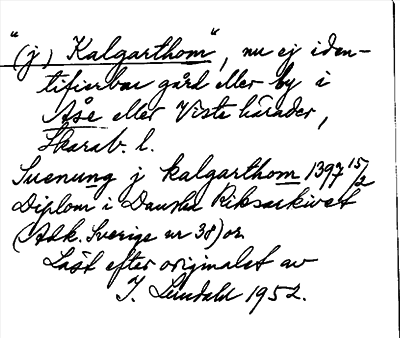 "(j) Kalgarthom", nu ej iden-
tifierbar gård eller by i
Åse eller Viste härader,
Skarab. l.
Suenung j kalgarthom 1397 15/2
Diplom i Danska Riksarkivet
(Adk. Sverige nr 38) or.
Läst efter originalet av
J. Liedahl 1952.